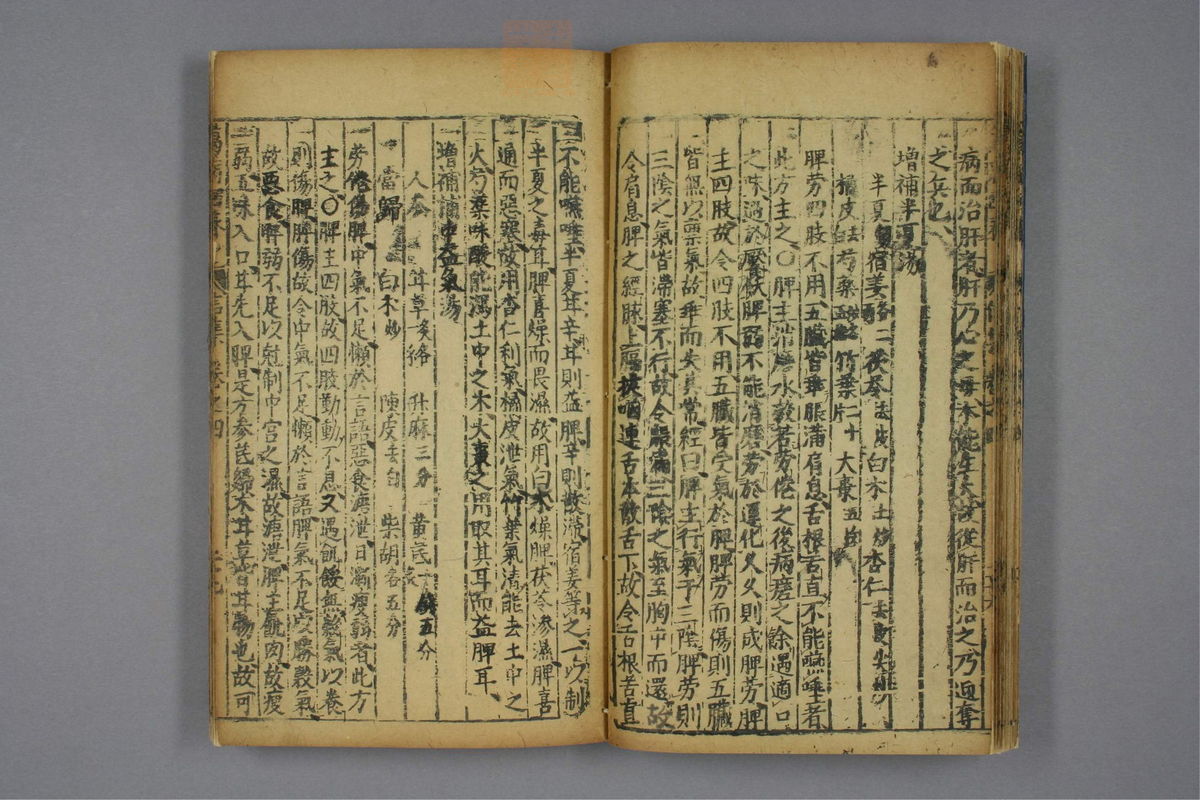 病而治肝者肝乃心之母木能生火故從肝而治之乃迎奪
之兵也
增補半夏湯
半夏 宿姜 各一 茯苓 去皮 白朮 土炒 杏仁 去皮尖炒
橘皮 去白 芍藥 竹葉 二十片 大棗 五枚
脾勞四肢不用五臟皆乖脹滿肩息舌根苦直不能嚥唾者
此方主之〇脾主消磨水穀若勞倦之後病瘥之餘遇適口
之味過於饜飫脾弱不能消磨勞於運化久久則成脾勞脾
主四肢故令四肢不用五臟皆受氣於脾脾勞而傷則五臟
皆無以稟氣故乖而失其常經曰脾主行氣于三陰脾勞則
三陰之氣皆滯塞不行故令脹滿三陰之氣至胸中而還故
令肩息脾之經脉上膈挾咽連舌本散舌下故令舌根苦直
不能嚥唾半夏辛耳則益脾辛則散滯宿姜等之以制
半夏之毒耳脾喜燥而畏濕故用白朮燥脾茯苓滲濕脾喜
通而惡塞故用杏仁利氣橘皮泄氣竹葉氣清能去土中之
火芍藥味酸能瀉土中之木大棗之用取其耳而益脾耳
增補補中益氣湯
人參 耳草 炙各 升麻 三分 黃芪 錢五分
當歸 白朮 炒 陳皮 去白 柴胡 各五分
勞倦傷脾中氣不足懶於言語惡食溏泄日漸瘦弱者此方
主之〇脾主四肢故四肢勤動不息又遇飢餒無穀氣以養
則傷脾脾傷故令中氣不足懶於言語脾氣不足以勝穀氣
故惡食脾弱不足以剋制中宮之濕故溏泄脾主肌肉故瘦
弱五味入口耳先入脾是方參芪歸朮耳草皆耳物也故可